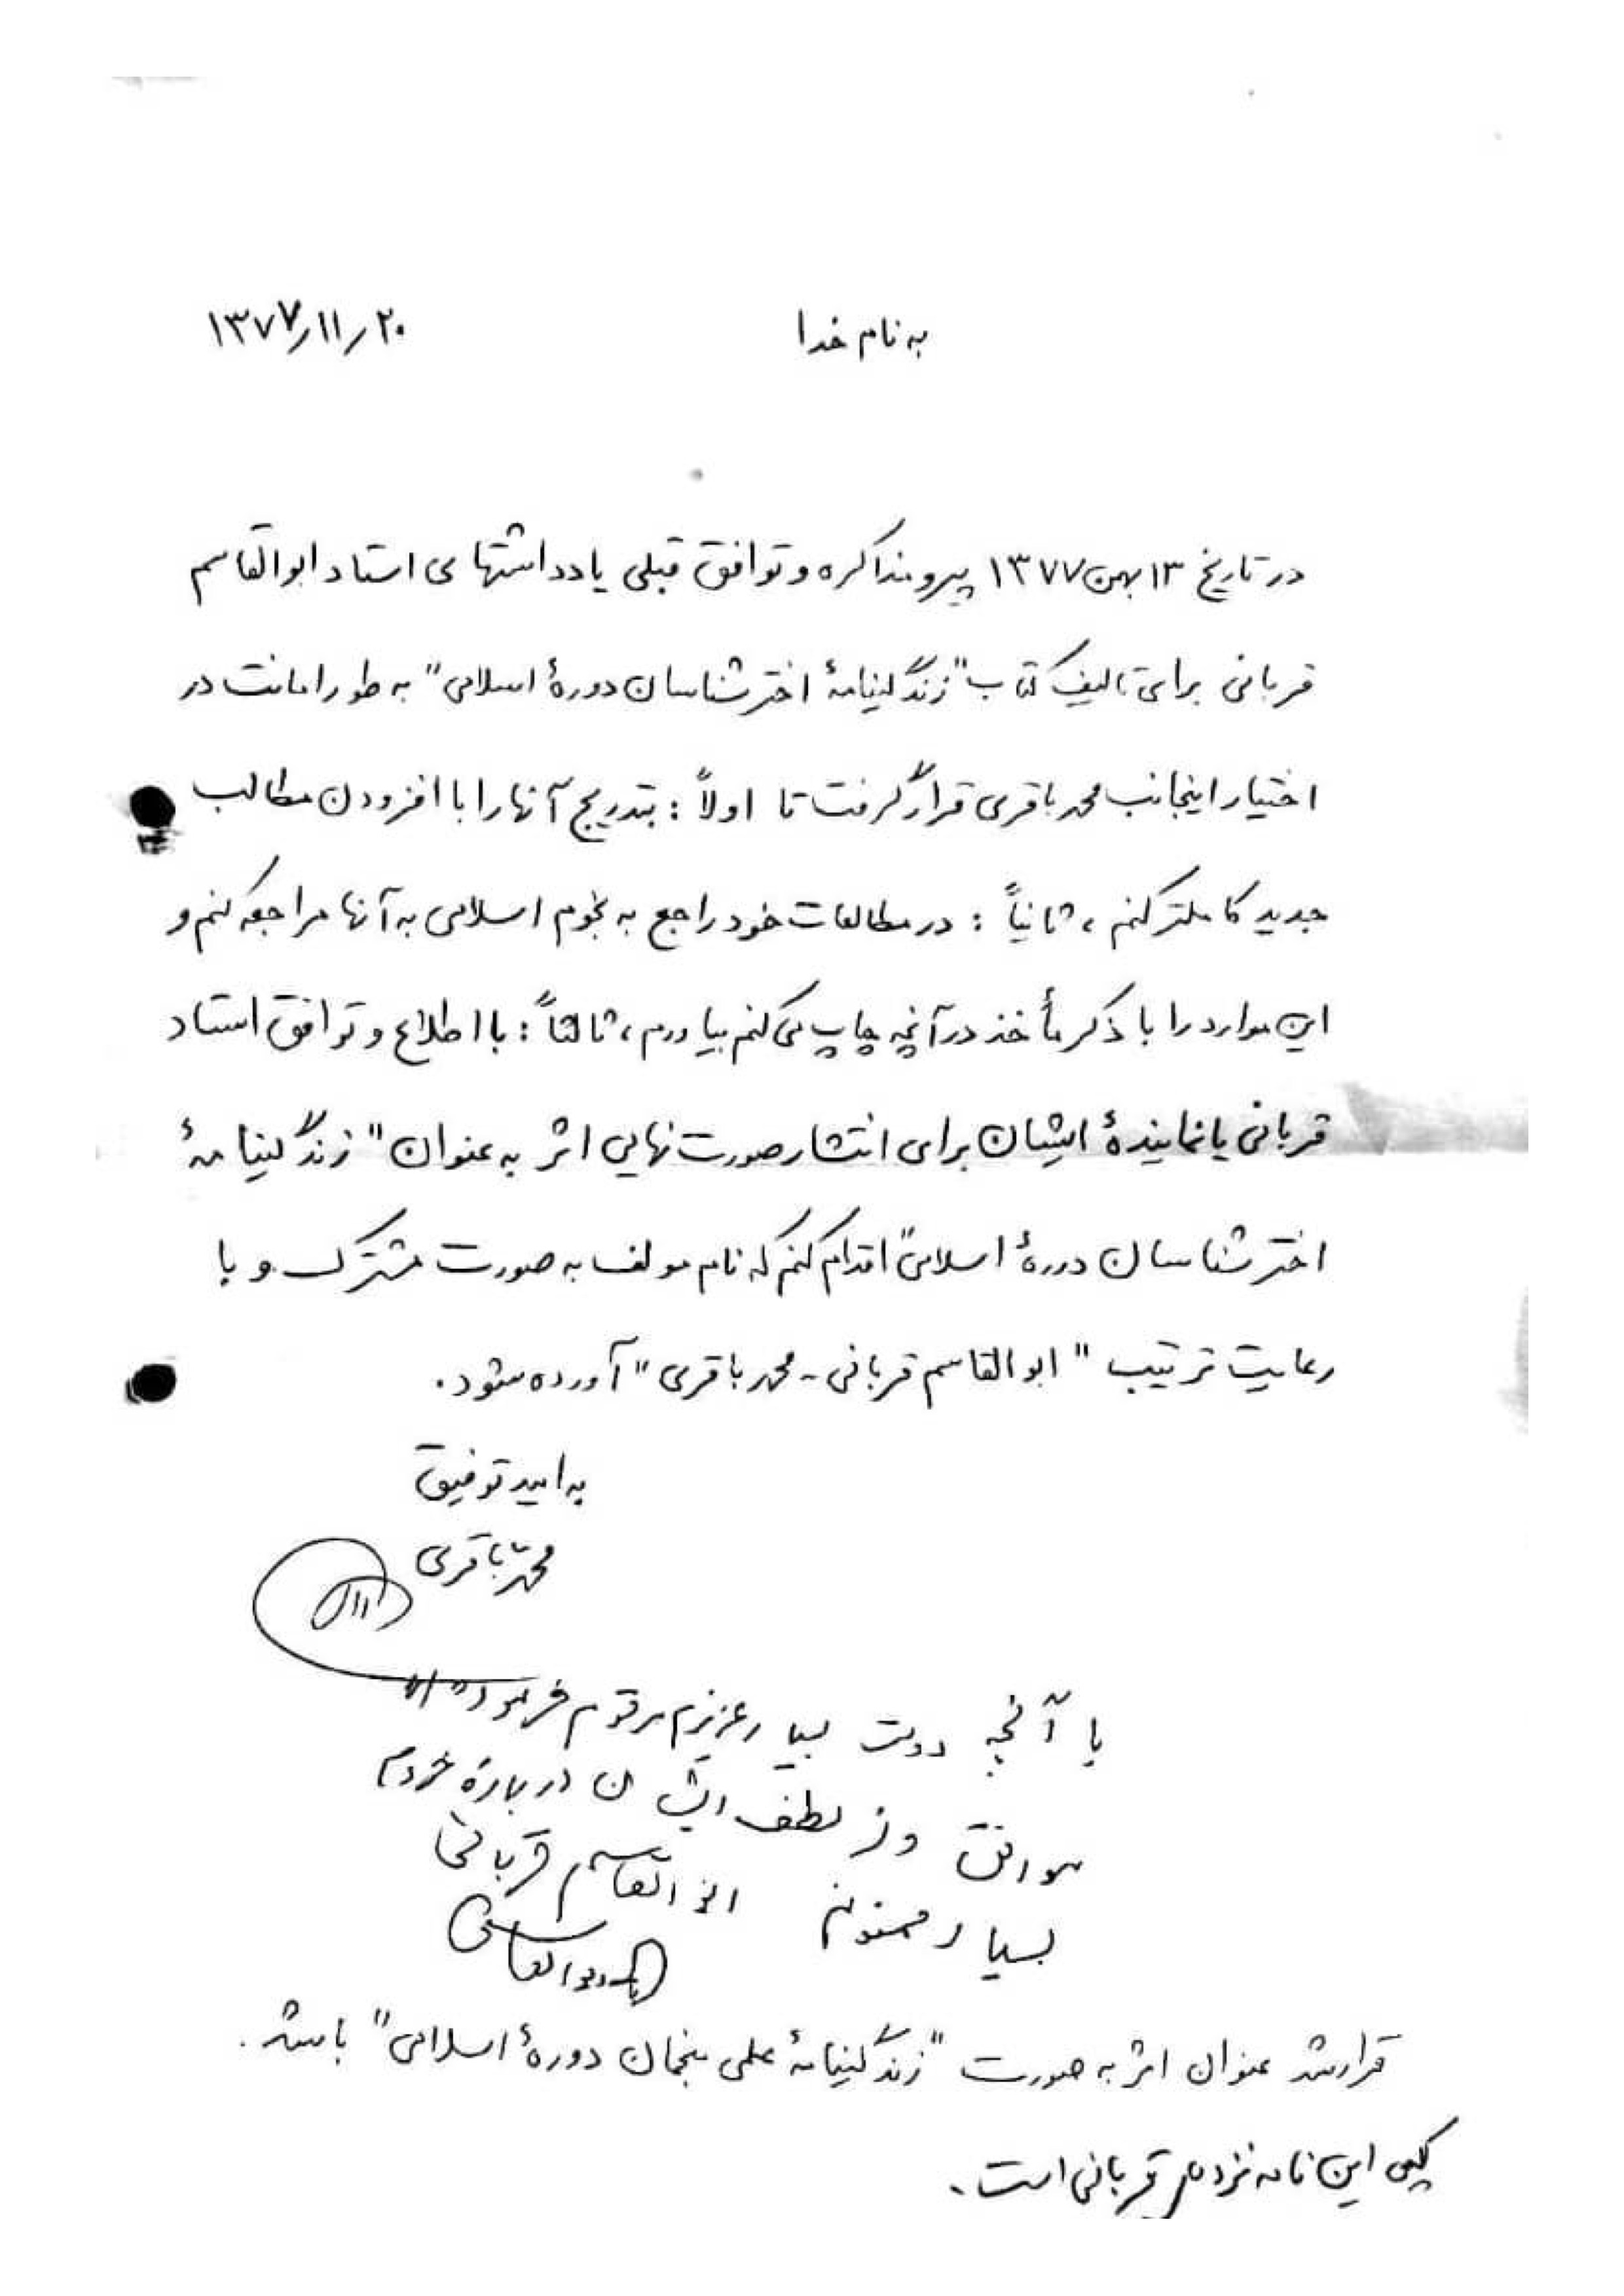 به نام خدا
۱۳۷۷/۱۱/۲۰
در تاریخ ۱۳ بهمن ۱۳۷۷ پیرو مذاکره و توافق قبلی یادداشتهای استاد ابوالقاسم
قربانی برای تالیف کتاب "زندگینامهٔ اخترشناسان دورهٔ اسلامی" به طور امانت در
اختیار اینجانب محمد باقری قرار گرفت تا اولاً : بتدریج آنها را با افزودن مطالب
جدید کاملتر کنم ، ثانیاً : در مطالعات خود راجع به نجوم اسلامی به آنها مراجعه کنم و
این موارد را با ذکر مأخذ در آنچه چاپ می کنم بیاورم ، ثالثاً : با اطلاع و توافق استاد
قربانی یا نمایندهٔ ایشان برای انتشار صورت نهایی اثر به عنوان "زندگینامهٔ
اخترشناسان دورهٔ اسلامی" اقدام کنم که نام مولف به صورت مشترک و با
رعایت ترتیب "ابوالقاسم قربانی - محمد باقری" آورده شود .
به امید توفیق
محمد باقری
با آنچه دوست بسیار عزیزم مرقوم فرموده‌اند
موافق و از لطف ایشان درباره خودم
بسیار ممنونم ابوالقاسم قربانی
قرار شد عنوان اثر به صورت "زندگینامهٔ علمی منجمان دورهٔ اسلامی" باشد .
کپی این نامه نزد قربانی است .